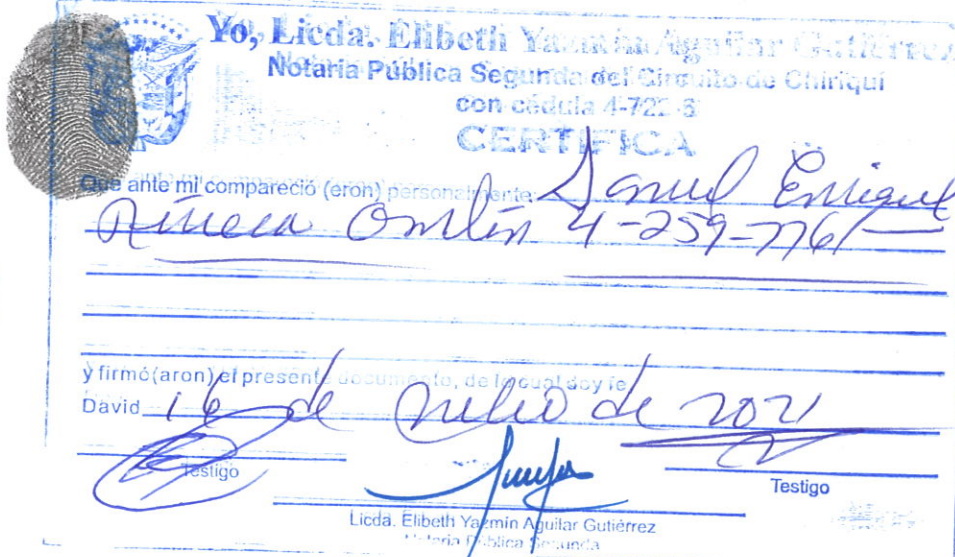 Yo, Licda. Elibeth Yazmín Aguilar Gutiérrez
Notaria Pública Segunda del Circuito de Chiriquí
con cédula 4-722-6
CERTIFICA
Que ante mi compareció (eron) personalmente: Daniel Enrique
4-259-776
y firmó(aron) el presente documento, de lo cual doy fe
David 16 de Julio de 2021
Testigo
Testigo
Licda. Elibeth Yazmín Aguilar Gutiérrez
Notaria Pública Segunda